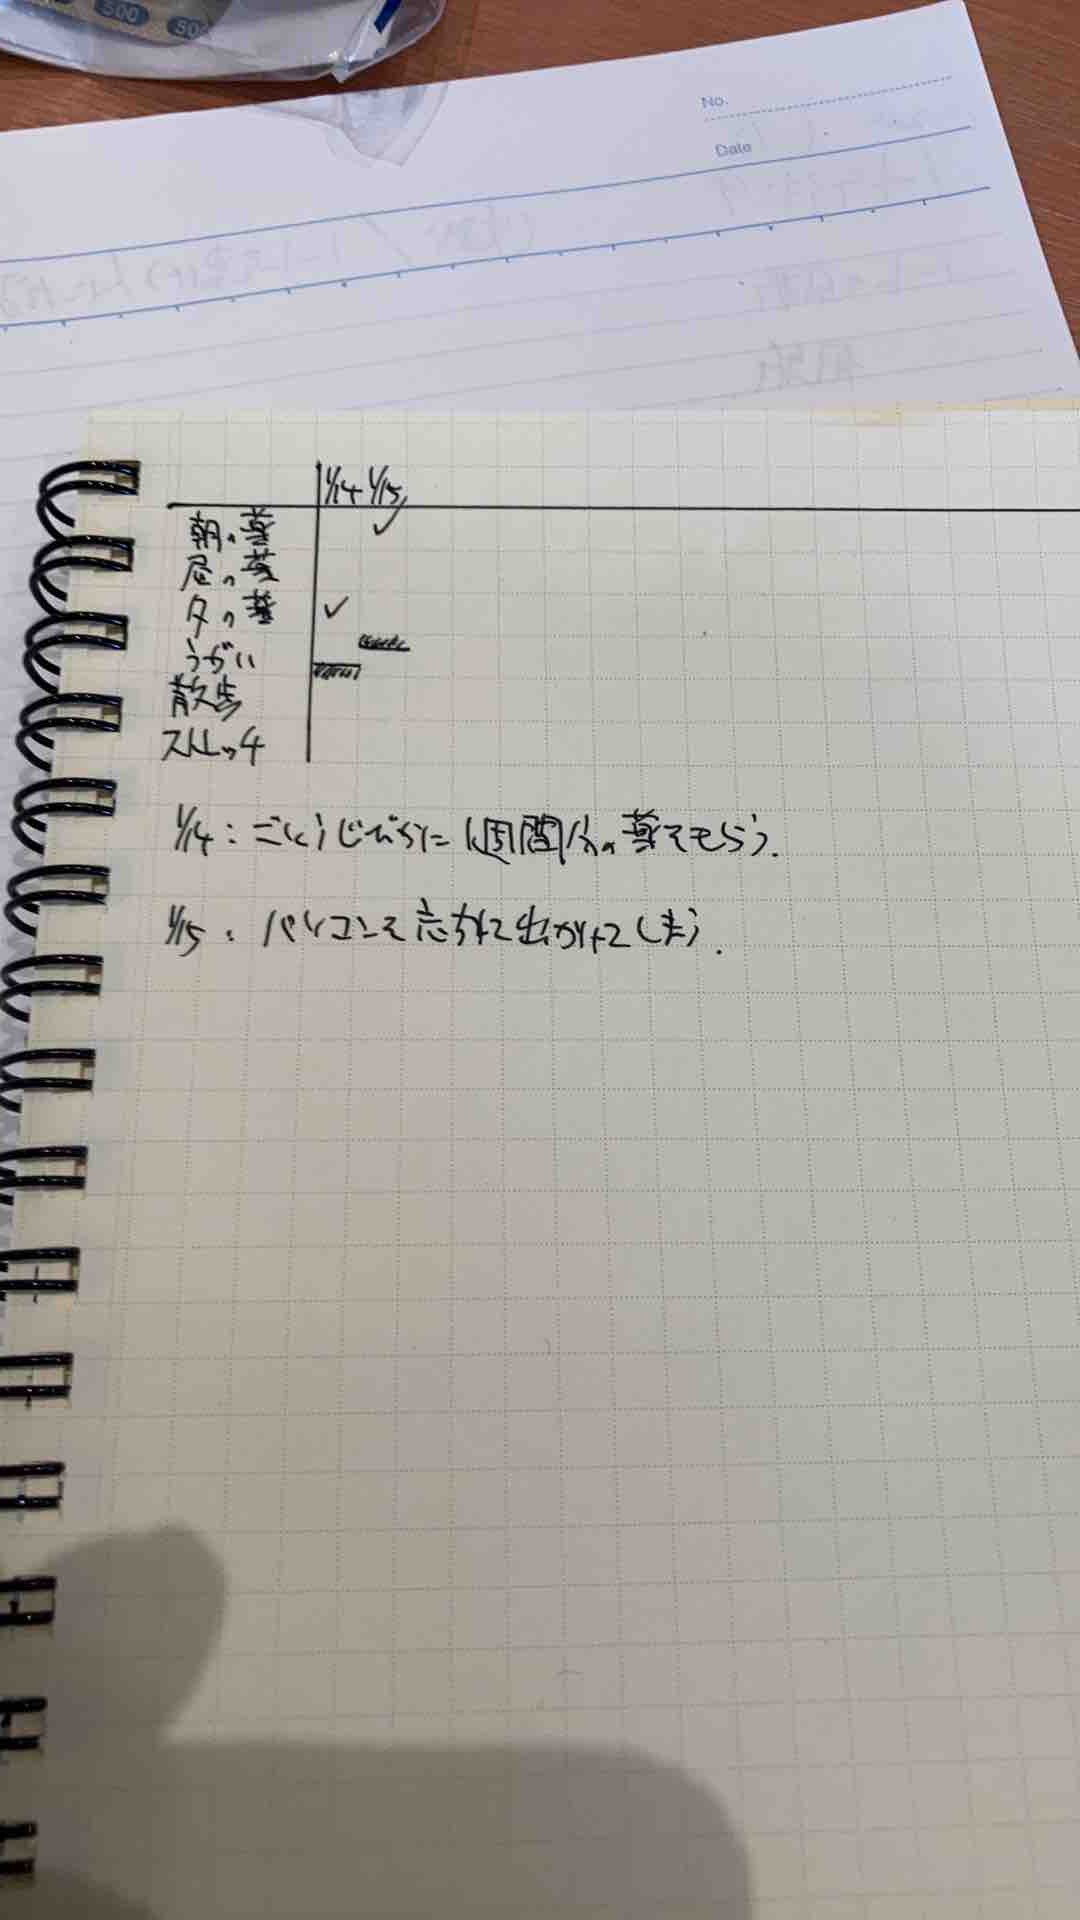 500
50
No.
Date
1/14 1/15
朝の薬 ✓
昼の薬
夕の薬 ✓
うがい
散歩
ストレッチ
1/14: 1週間分の薬をもらう.
1/15: パソコンを忘れて出かけてしまう.